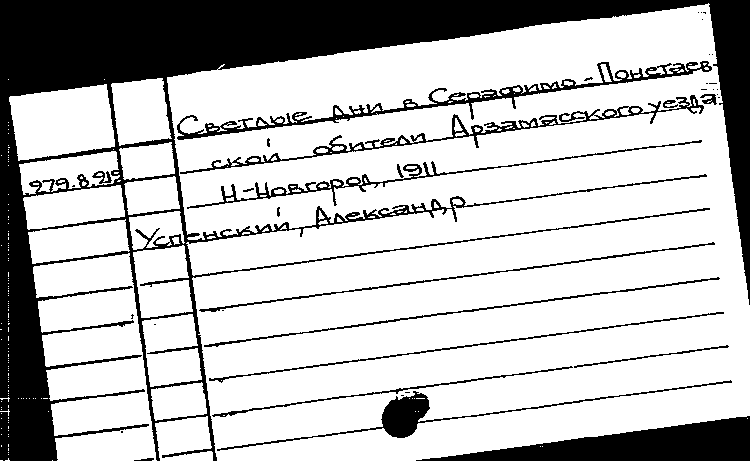 Светлые дни в Серафимо-Понетаев-
ской обители Арзамасского уезда
279.8.919
Н.-Новгород, 1911
Успенский, Александр